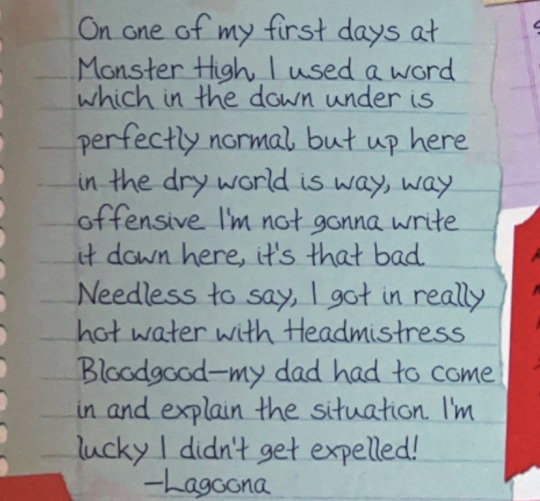 On one of my first days at
Monster High, I used a word
which in the down under is
perfectly normal, but up here
in the dry world is way, way
offensive. I'm not gonna write
it down here, it's that bad.
Needless to say, I got in really
hot water with Headmistress
Bloodgood—my dad had to come
in and explain the situation. I'm
lucky I didn't get expelled!
—Lagoona